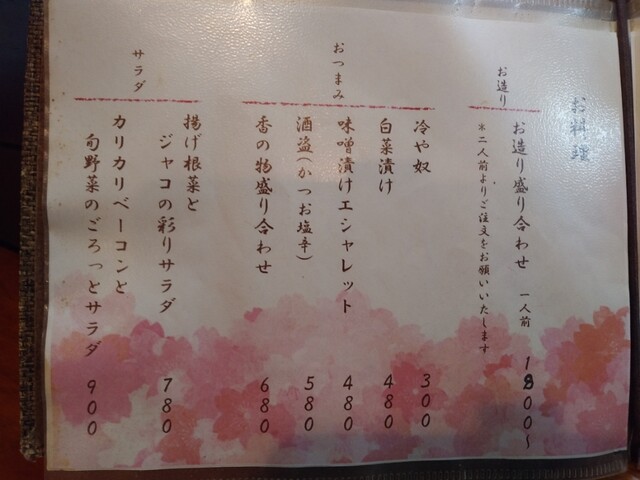 お料理
お造り
お造り盛り合わせ 一人前 1800~
※二人前よりご注文をお願いいたします
おつまみ
冷や奴 300
白菜漬け 480
味噌漬けエシャレット 480
酒盗(かつお塩辛) 580
香の物盛り合わせ 680
サラダ
揚げ根菜と
ジャコの彩りサラダ 780
カリカリベーコンと
旬野菜のごろっとサラダ 900